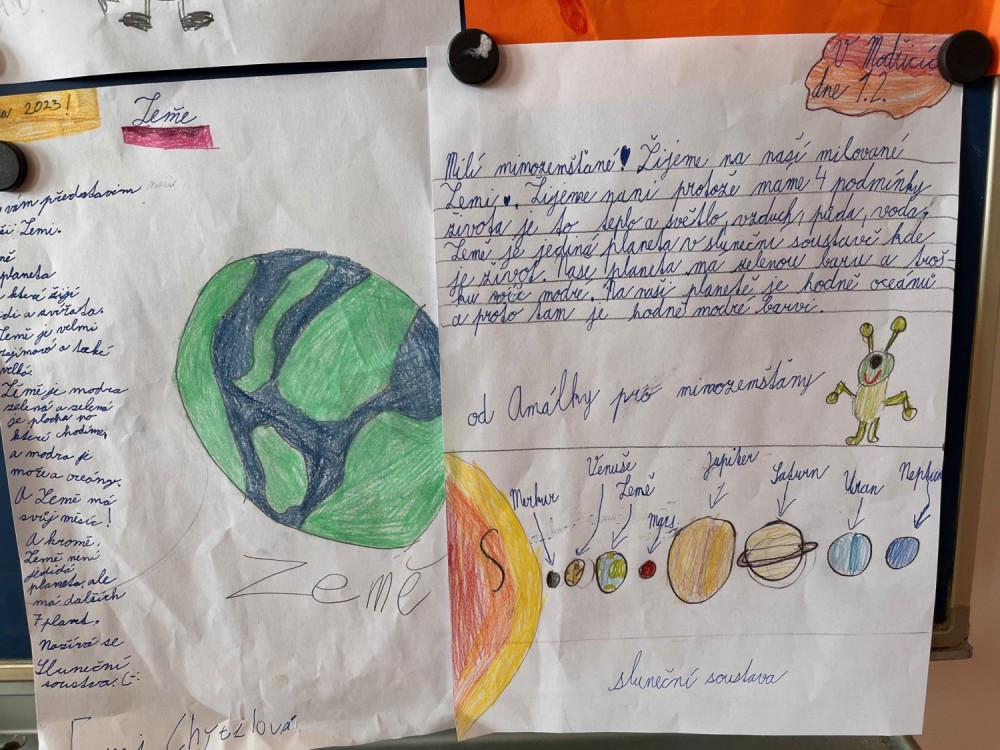 2023!
Země
vám představím
Zemi.
planeta
která žijí
lidi a zvířata.
Země je velmi
zajímavá a také
velká.
Země je modra
zelená a zelená
je plocha po
které chodíme,
a modra je
moře a oceány.
A Země má
svůj měsíc!
A kromě.
Země není
jedidá
planeta, ale
má dalších
7 planet.
Nazívá se
Sluneční
soustava. (-:
Země
Chytilová
V Modřicích
dne 1.2.
Milí mimozemšťané! Žijeme na naší milované
Zemi. Žijeme na ni protože máme 4 podmínky
života je to teplo a světlo, vzduch, půda, voda,
Země je jediná planeta v sluneční soustavě kde
je život. Naše planeta má zelenou barvu a troš-
ku modré. Na naší planetě je hodně oceánů
a proto tam je hodně modré barvi.
od Amálky pro mimozemšťany
Merkur Venuše Země mars Jupiter Saturn Uran Neptun
S
sluneční soustava